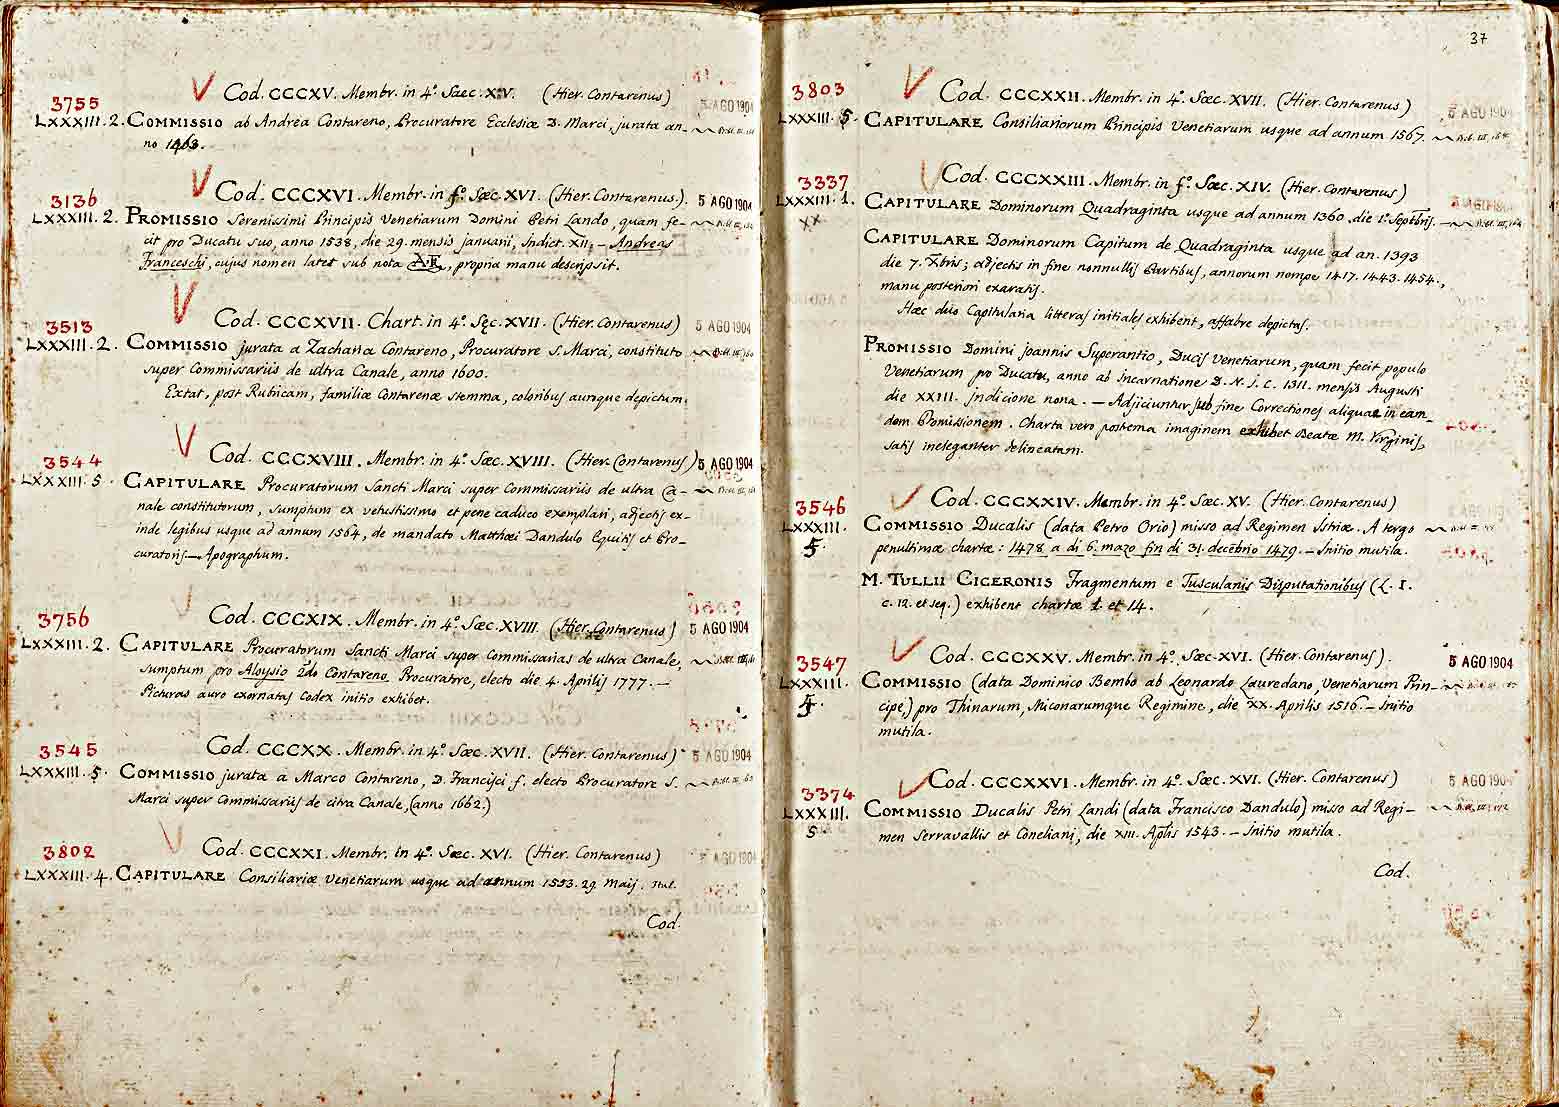 3755
LXXXIII. 2.
Cod. CCCXV. Membr. in 4º. Sæc. XV. (Hier. Contarenus)
5 AGO 1904
COMMISSIO ab Andrea Contareno, Procuratore Ecclesiæ D. Marci, jurata an-
no 1463.
3136
LXXXIII. 2.
Cod. CCCXVI. Membr. in fº. Sæc. XVI. (Hier. Contarenus).
5 AGO 1904
PROMISSIO Serenissimi Principis Venetiarum Domini Petri Lando, quam fe-
cit pro Ducatu suo, anno 1538, die 29. mensis januarii, Indict. XII. — Andreas
Franceschi, cujus nomen latet sub nota, propria manu descripsit.
3513
LXXXIII. 2.
Cod. CCCXVII. Chart. in 4º. Sęc. XVII. (Hier. Contarenus)
5 AGO 1904
COMMISSIO jurata a Zacharia Contareno, Procuratore S. Marci, constituto
super Commissariis de ultra Canale, anno 1600.
Extat, post Rubricam, familiæ Contarenæ stemma, coloribus auroque depictum.
3544
LXXXIII. 5
Cod. CCCXVIII. Membr. in 4º. Sæc. XVIII. (Hier. Contarenus)
5 AGO 1904
CAPITULARE Procuratorum Sancti Marci super Commissariis de ultra Ca-
nale constitutorum, sumptum ex vetustissimo et pene caduco exemplari, adjectis ex-
inde legibus usque ad annum 1564, de mandato Matthæi Dandulo Equitis et Pro-
curatoris. — Apographum.
3756
LXXXIII. 2.
Cod. CCCXIX. Membr. in 4º. Sæc. XVIII. (Hier. Contarenus)
5 AGO 1904
CAPITULARE Procuratorum Sancti Marci super Commissarias de ultra Canale,
sumptum pro Aloysio 2do Contareno, Procuratore, electo die 4. Aprilis 1777. —
Picturas auro exornatas Codex initio exhibet.
3545
LXXXIII. 5.
Cod. CCCXX. Membr. in 4º. Sæc. XVII. (Hier. Contarenus)
5 AGO 1904
COMMISSIO jurata a Marco Contareno, D. Francisci f. electo Procuratore S.
Marci super Commissariis de citra Canale, (anno 1662.)
3802
LXXXIII. 4.
Cod. CCCXXI. Membr. in 4º. Sæc. XVI. (Hier. Contarenus)
5 AGO 1904
CAPITULARE Consiliariæ Venetiarum usque ad annum 1553. 29. Maij. Ital.
Cod.
37
3803
LXXXIII. 5.
Cod. CCCXXII. Membr. in 4º. Sæc. XVII. (Hier. Contarenus)
5 AGO 1904
CAPITULARE Consiliariorum Principis Venetiarum usque ad annum 1567.
3337
LXXXIII. 1.
XX
Cod. CCCXXIII. Membr. in fº. Sæc. XIV. (Hier. Contarenus)
CAPITULARE Dominorum Quadraginta usque ad annum 1360. die 1º. Septbris.
CAPITULARE Dominorum Capitum de Quadraginta usque ad an. 1393
die 7. Xbris; adjectis in fine nonnullis Partibus, annorum nempe 1417. 1443. 1454.,
manu posteriori exaratis.
Hæc duo Capitularia litteras initiales exhibent, affabre depictas.
PROMISSIO Domini Joannis Superantio, Ducis Venetiarum, quam fecit populo
Venetiarum pro Ducatu, anno ab Incarnatione D. N. J. C. 1311. mensis Augusti
die XXIII. Indicione nona. — Adjiciuntur sub fine Correctiones aliquæ in eam-
dem Promissionem. Charta vero postema imaginem exhibet Beatæ M. Virginis,
satis ineleganter delineatam.
3546
LXXXIII.
5.
Cod. CCCXXIV. Membr. in 4º. Sæc. XV. (Hier. Contarenus)
COMMISSIO Ducalis (data Petro Orio) misso ad Regimen Istriæ. A tergo
penultimæ chartæ: 1478. a di 6. mazo fin di 31. decēbrio 1479. — Initio mutila.
M. TULLII CICERONIS Fragmentum e Tusculanis Disputationibus (L. I.
c. 12. et seq.) exhibent chartæ 1. et 14.
3547
LXXXIII.
Cod. CCCXXV. Membr. in 4º. Sæc. XVI. (Hier. Contarenus).
5 AGO 1904
COMMISSIO (data Dominico Bembo ab Leonardo Lauredano, Venetiarum Prin-
cipe,) pro Thinarum, Miconarumque Regimine, die XX. Aprilis 1516. — Initio
mutila.
3374
LXXXIII.
5
Cod. CCCXXVI. Membr. in 4º. Sæc. XVI. (Hier. Contarenus)
5 AGO 1904
COMMISSIO Ducalis Petri Landi (data Francisco Dandulo) misso ad Regi-
men Serravallis et Coneliani, die XIII. Aplis 1543. — Initio mutila.
Cod.